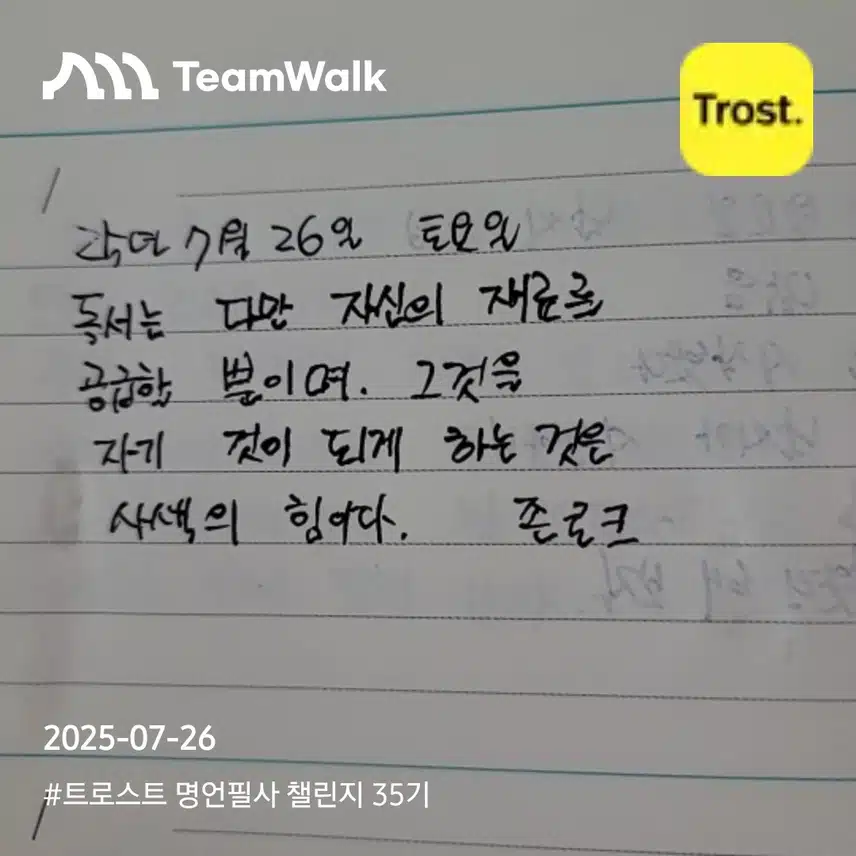 TeamWalk
Trost.
7월 26일 토요일
독서는 다만 자신의 재료를
공급할 뿐이며. 그것을
자기 것이 되게 하는 것은
사색의 힘이다. 존로크
2025-07-26
#트로스트 명언필사 챌린지 35기